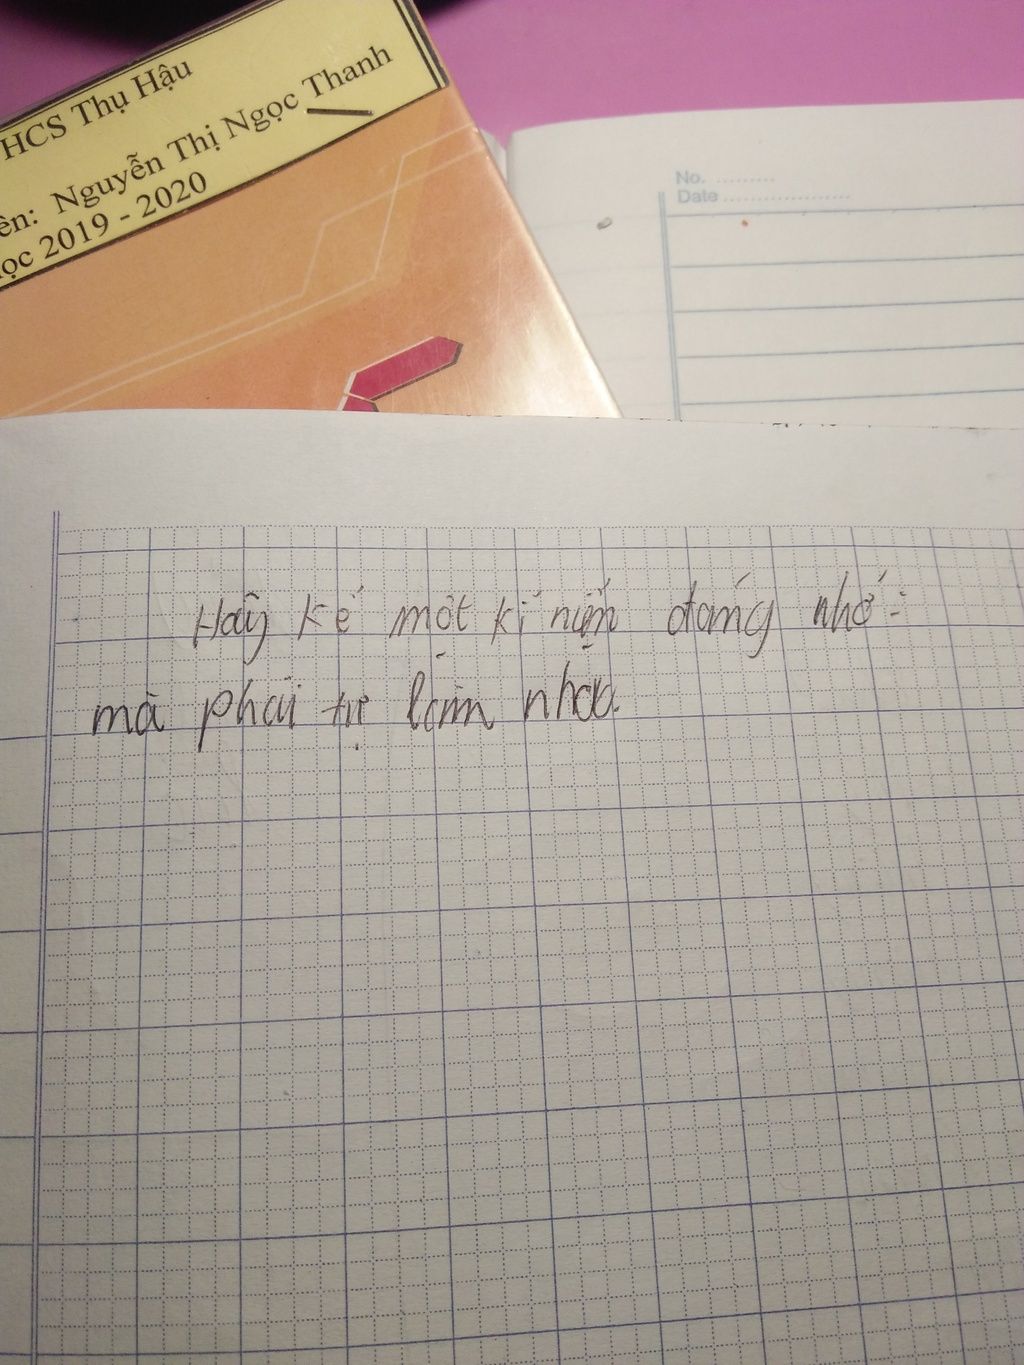 HCS Thụ Hậu
ên: Nguyễn Thị Ngọc Thanh
ọc 2019 - 2020
No. ..........
Date ...................
Hãy kể một kỉ niệm đáng nhớ :
mà phải tự làm nhoa.